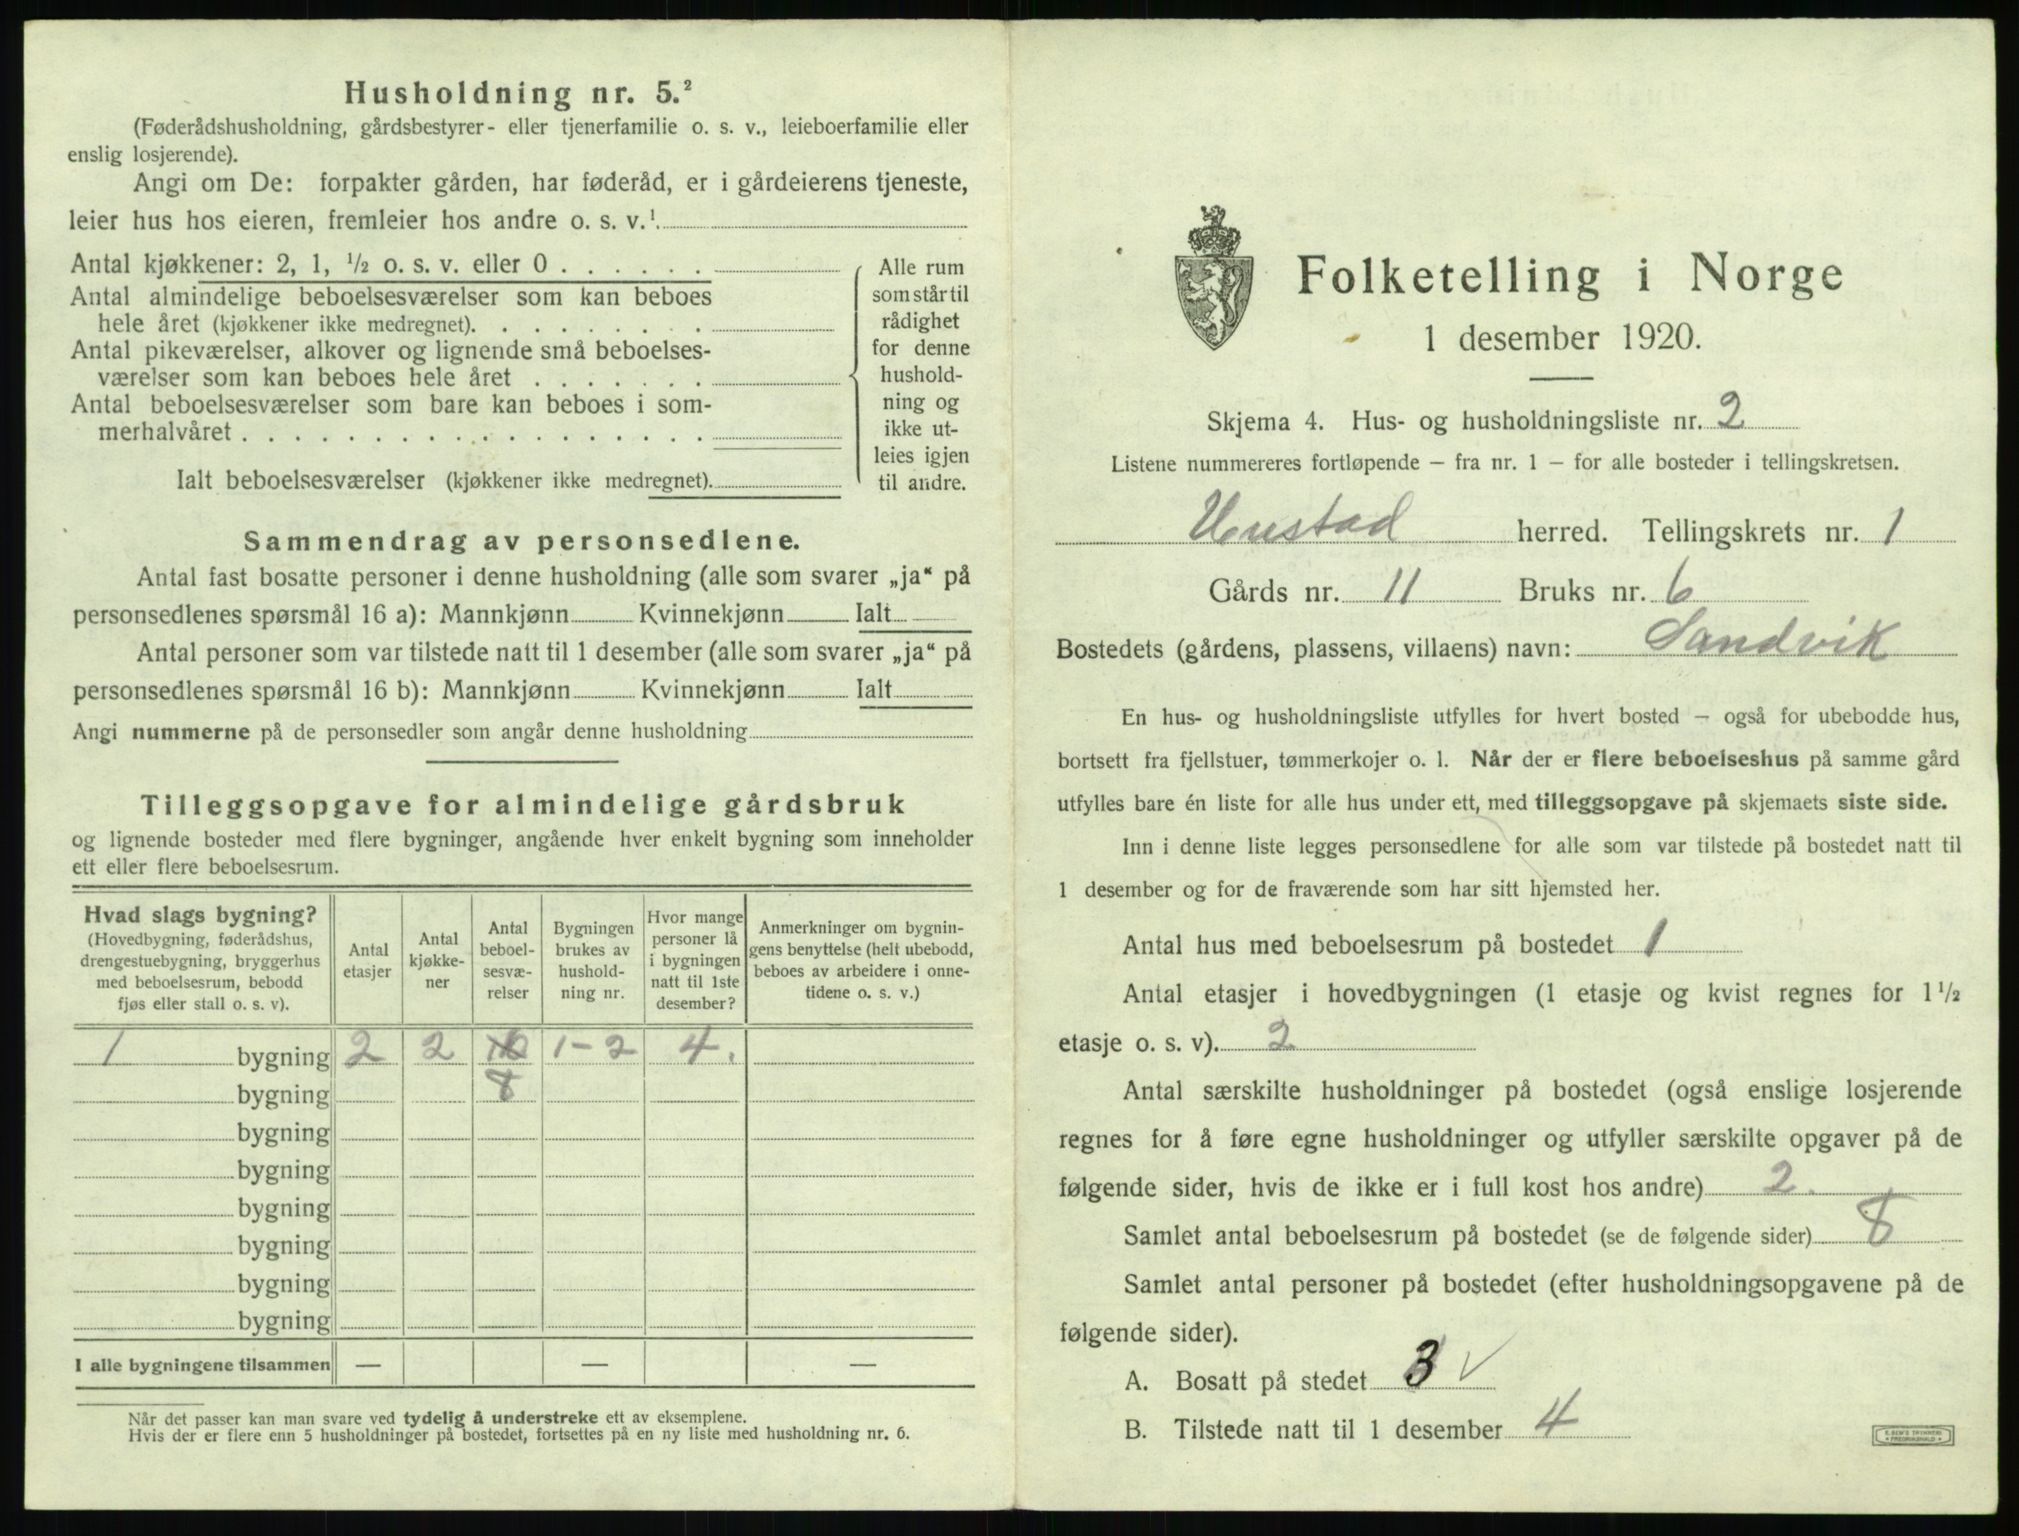 Husholdning nr. 5.²
(Føderådshusholdning, gårdsbestyrer- eller tjenerfamilie o. s. v., leieboerfamilie eller
enslig losjerende).
Angi om De: forpakter gården, har føderåd, er i gårdeierens tjeneste,
leier hus hos eieren, fremleier hos andre o. s. v.¹
Antal kjøkkener: 2, 1, ½ o. s. v. eller 0
Antal almindelige beboelsesværelser som kan beboes
hele året (kjøkkener ikke medregnet).
Antal pikeværelser, alkover og lignende små beboelses-
værelser som kan beboes hele året
Antal beboelsesværelser som bare kan beboes i som-
merhalvåret
Ialt beboelsesværelser (kjøkkener ikke medregnet).
Alle rum
som står til
rådighet
for denne
hushold-
ning og
ikke ut-
leies igjen
til andre.
Sammendrag av personsedlene.
Antal fast bosatte personer i denne husholdning (alle som svarer „ja“ på
personsedlenes spørsmål 16 a): Mannkjønn Kvinnekjønn Ialt
Antal personer som var tilstede natt til 1 desember (alle som svarer „ja“ på
personsedlenes spørsmål 16 b): Mannkjønn Kvinnekjønn Ialt
Angi nummerne på de personsedler som angår denne husholdning
Tilleggsopgave for almindelige gårdsbruk
og lignende bosteder med flere bygninger, angående hver enkelt bygning som inneholder
ett eller flere beboelsesrum.
Hvad slags bygning?
(Hovedbygning, føderådshus,
drengestuebygning, bryggerhus
med beboelsesrum, bebodd
fjøs eller stall o. s. v).
Antal
etasjer
Antal
kjøkke-
ner
Antal
beboel-
sesvæ-
relser
Bygningen
brukes av
hushold-
ning nr.
Hvor mange
personer lå
i bygningen
natt til 1ste
desember?
Anmerkninger om bygnin-
gens benyttelse (helt ubebodd,
beboes av arbeidere i onne-
tidene o. s. v.)
1 bygning 2 2 10 1-2 4.
bygning 8
bygning
bygning
bygning
bygning
bygning
bygning
I alle bygningene tilsammen — — —
Når det passer kan man svare ved tydelig å understreke ett av eksemplene.
Hvis der er flere enn 5 husholdninger på bostedet, fortsettes på en ny liste med husholdning nr. 6.
Folketelling i Norge
1 desember 1920.
Skjema 4. Hus- og husholdningsliste nr. 2
Listene nummereres fortløpende – fra nr. 1 – for alle bosteder i tellingskretsen.
Hustad herred. Tellingskrets nr. 1
Gårds nr. 11 Bruks nr. 6
Bostedets (gårdens, plassens, villaens) navn: Sandvik
En hus- og husholdningsliste utfylles for hvert bosted – også for ubebodde hus,
bortsett fra fjellstuer, tømmerkojer o. l. Når der er flere beboelseshus på samme gård
utfylles bare én liste for alle hus under ett, med tilleggsopgave på skjemaets siste side.
Inn i denne liste legges personsedlene for alle som var tilstede på bostedet natt til
1 desember og for de fraværende som har sitt hjemsted her.
Antal hus med beboelsesrum på bostedet 1
Antal etasjer i hovedbygningen (1 etasje og kvist regnes for 1½
etasje o. s. v). 2
Antal særskilte husholdninger på bostedet (også enslige losjerende
regnes for å føre egne husholdninger og utfyller særskilte opgaver på de
følgende sider, hvis de ikke er i full kost hos andre) 2.
Samlet antal beboelsesrum på bostedet (se de følgende sider) 8
Samlet antal personer på bostedet (efter husholdningsopgavene på de
følgende sider).
A. Bosatt på stedet 3 √
B. Tilstede natt til 1 desember 4
E. SEM'S TRYKKERI
FREDRIKSHALD